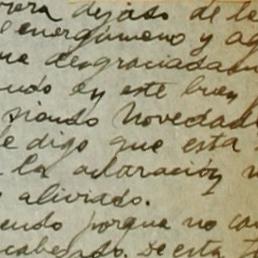 dejado de
energúmeno y
desgraciadam
en este buen
siendo novedad
digo que esta
la aclaración
aliviado.
endo porque no
cabezado. De esta